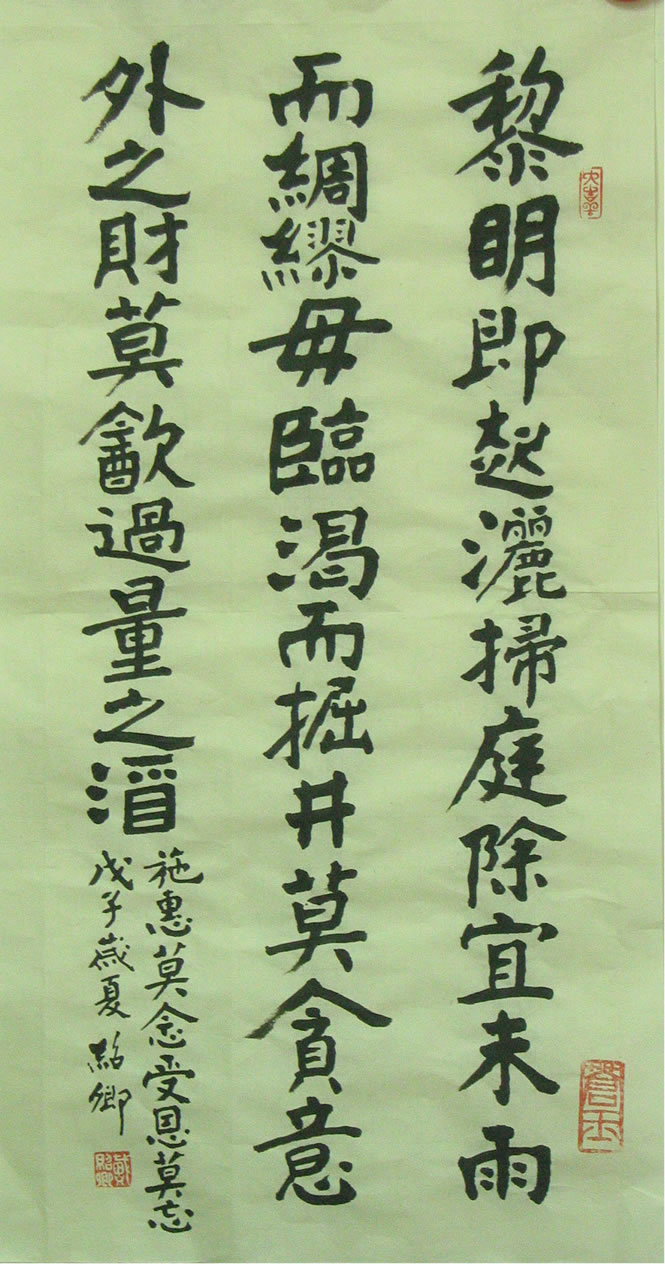 黎明即起灑掃庭除宜未雨
而綢繆毋臨渴而掘井莫貪意
外之財莫飲過量之酒
施惠莫念受恩莫忘
戊子歲夏 紹卿